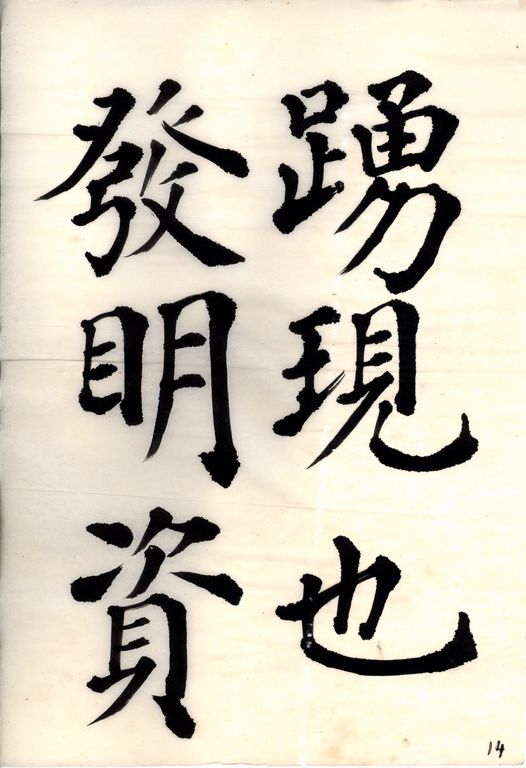 踴現也
發明資
14